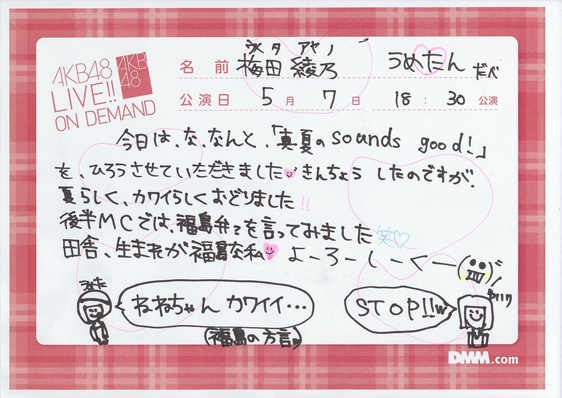 AKB48
LIVE!!
ON DEMAND
AKB
48
ウメタ アヤノ
名前 梅田 綾乃 うめたん だべ
公演日 5月 7日 18:30公演
今日は、な、なんと、「真夏のsounds good!」
を、ひろうさせていただきました きんちょう したのですが、
夏らしく、カワイらしくおどりました!!
後半MCでは、福島弁を言ってみました 笑♡
田舎、生まれが福島な私 よーろーしーくー
ねねちゃん カワイイ…
(福島の方言)
STOP!!w
DMM.com